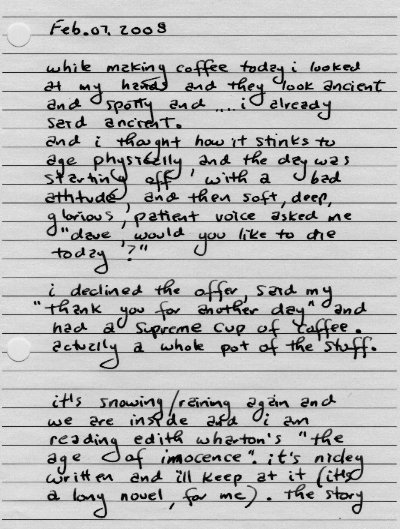 Feb. 07. 2008
while making coffee today i looked
at my hands and they look ancient
and spotty and .... i already
said ancient.
and i thought how it stinks to
age physically and the day was
starting off with a bad
attitude, and then soft, deep,
glorious, patient voice asked me
"dave, would you like to die
today?"
i declined the offer, said my
"thank you for another day" and
had a supreme cup of coffee.
actually a whole pot of the stuff.
it's snowing/raining again and
we are inside and i am
reading edith wharton's "the
age of innocence". it's nicley
written and ill keep at it (it's
a long novel, for me). the story